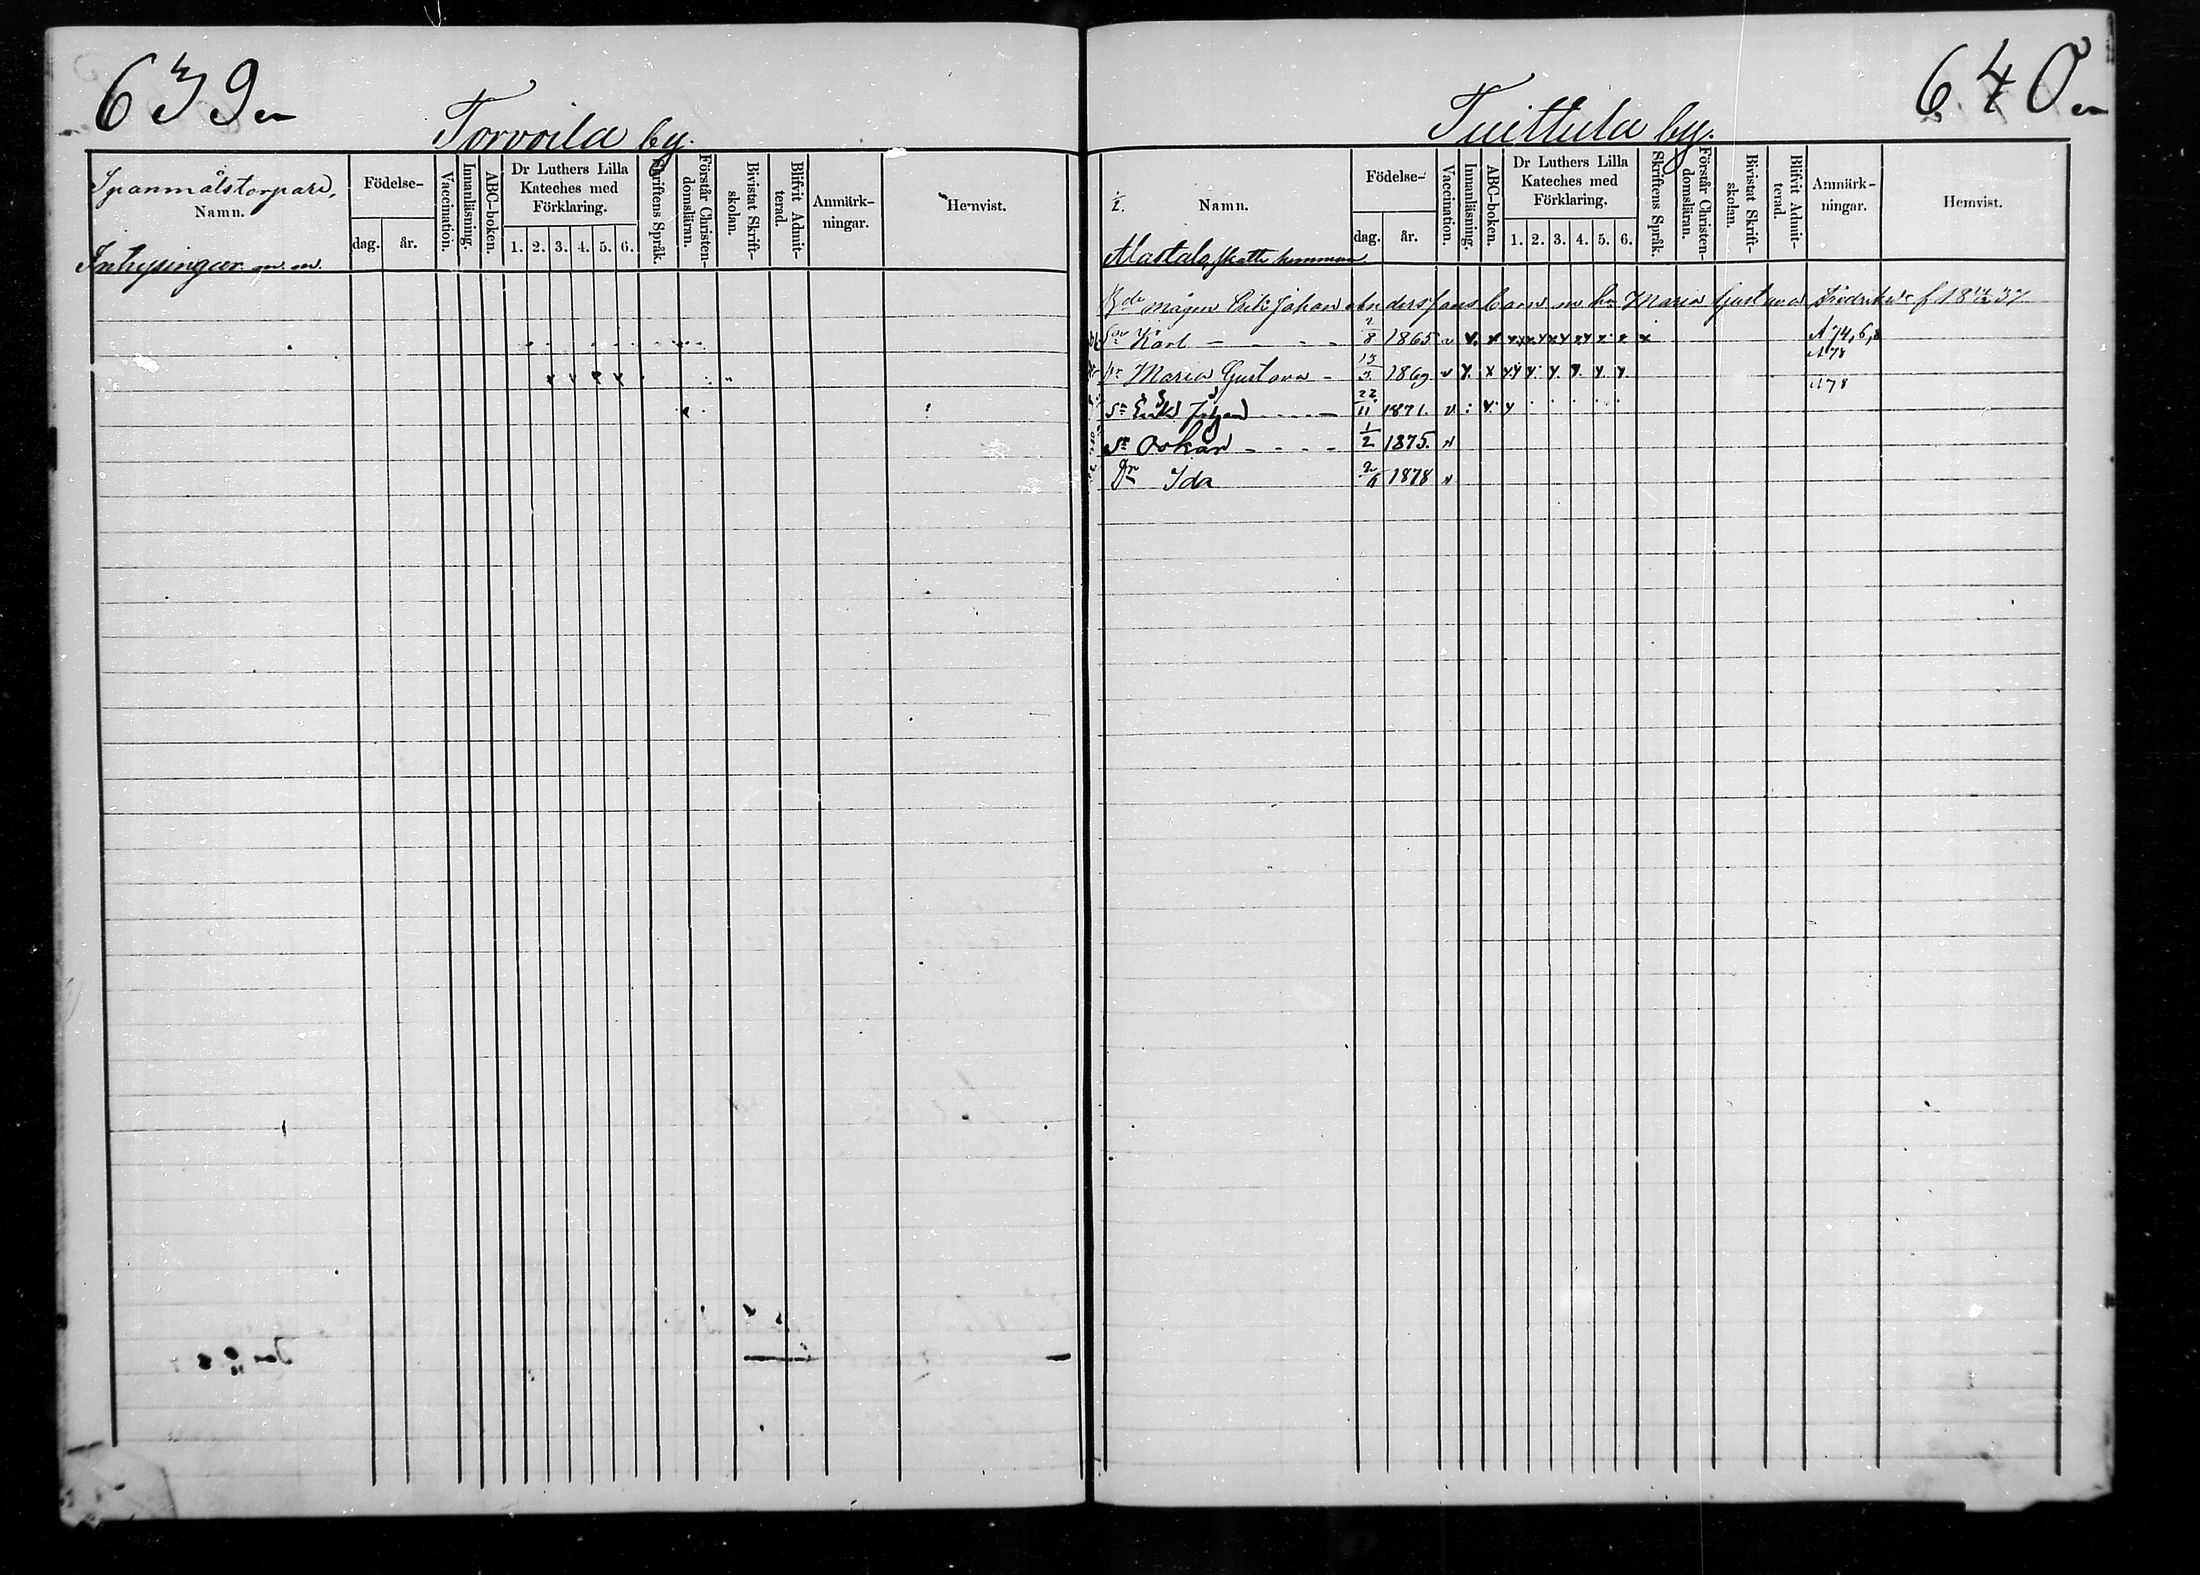 639
Torvoila by.
Spanmålstorpare,
Namn.
Födelse-
dag. år.
Vaccination.
Innanläsning.
ABC-boken.
Dr Luthers Lilla
Kateches med
Förklaring.
1. 2. 3. 4. 5. 6.
Skriftens Språk.
Förstår Christen-
domsläran.
Bivistat Skrift-
skolan.
Blifvit Admit-
terad.
Anmärk-
ningar.
Hemvist.
Inhysingar m. m.
640
Tuittula by.
Namn.
Födelse-
dag. år.
Vaccination.
Innanläsning.
ABC-boken.
Dr Luthers Lilla
Kateches med
Förklaring.
1. 2. 3. 4. 5. 6.
Skriftens Språk.
Förstår Christen-
domsläran.
Bivistat Skrift-
skolan.
Blifvit Admit-
terad.
Anmärk-
ningar.
Hemvist.
Alastalo, skatte hemman
mågen Erik Johan Anderssons barn m. h. Maria Gustava
Sn Karl - - - - 2/8 1865 v x x x x x x x x x A 74, 6, 8
Dr Maria Gustava - 13/3 1869 v x x x x x x x x A 78
Sn Erik Johan - - - - 22/11 1871. v : x x A 78
Sn Oskar - - - - 1/2 1875. v
Dr Ida 2/6 1878 v